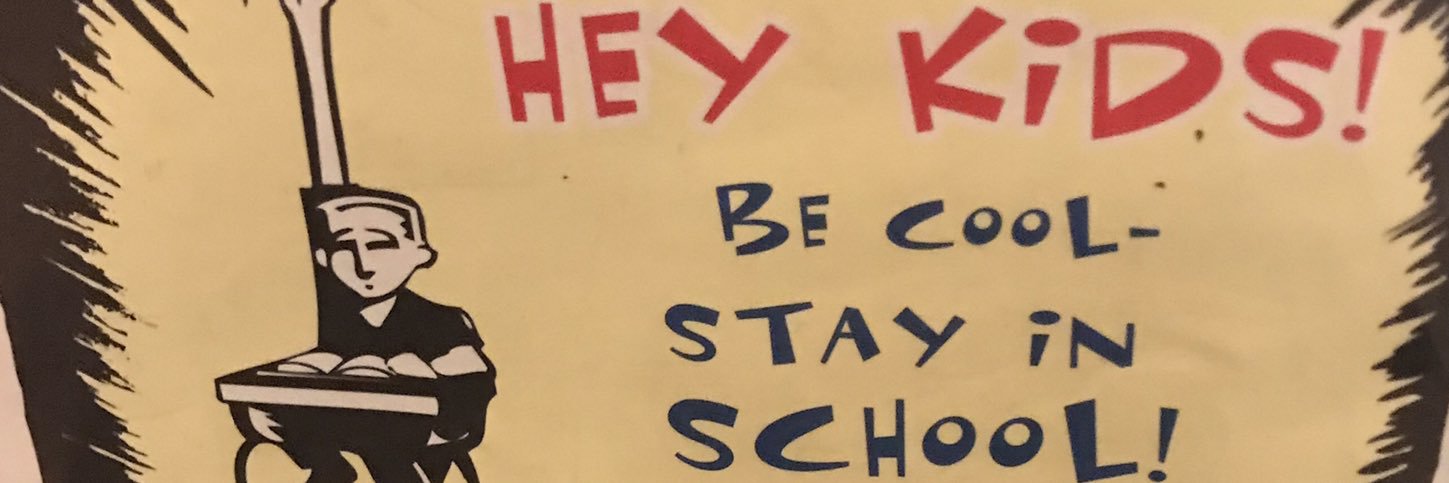 HEY KiDS!
BE COOL-
STAY iN
SCHOOL!